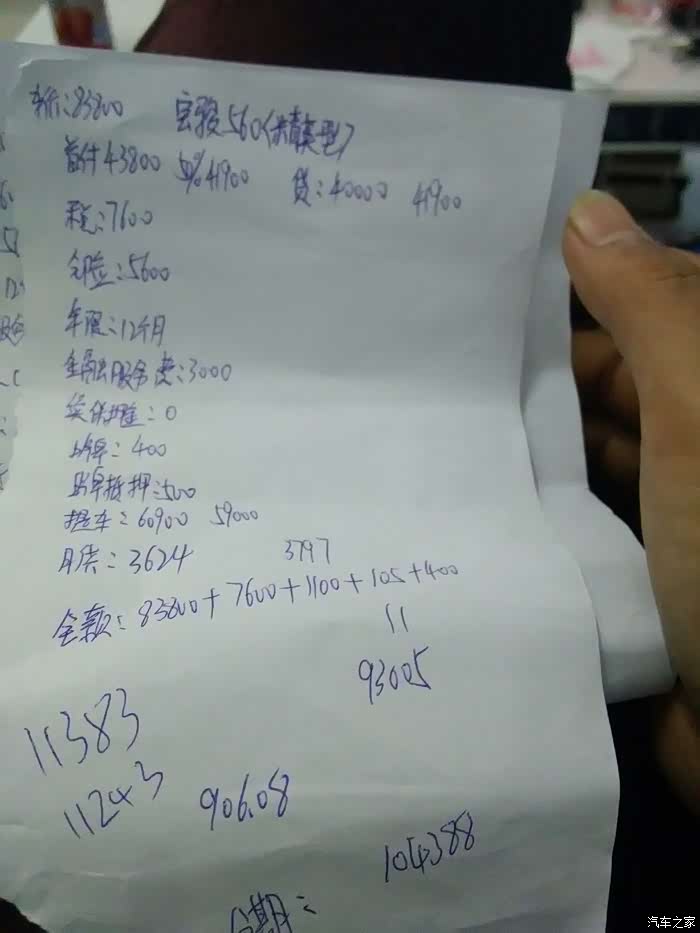 车价:83800 宝骏560(精英型)
首付43800 50%41900 贷:40000 41900
税:7600
全险:5600
年限:12个月
金融服务费:3000
续保押金:0
上牌:400
上牌抵押:500
提车:60900 59000
月供:3624 3797
全款:83800+7600+1100+105+400
=
93005
11383
11243
906.08
104388
分期:
汽车之家